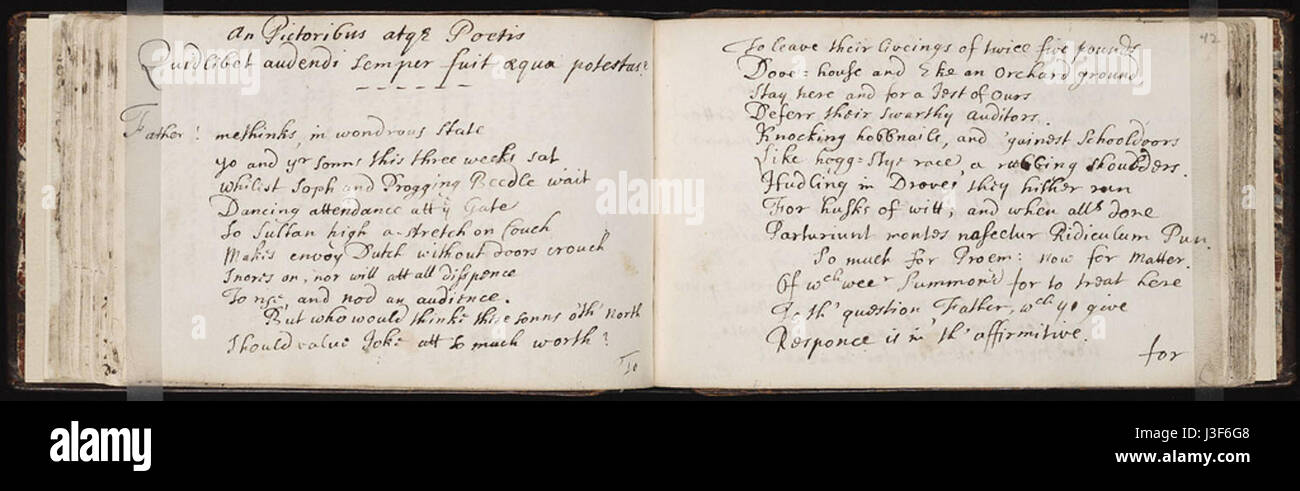 An Pictoribus atqꝫ Poetis
Quidlibet audendi semper fuit æqua potestas?
Father! methinks, in wondrous State
yo and yr sonns this three weeks sat
Whilest Soph and Progging Beedle wait
Dancing attendance att yͤ Gate
So Sultan high a-stretch on Couch
Makes envoy Dutch without doors crouch
Snores on, nor will att all disspence
To rise and nod an audience.
But who would thinke these sonns o'th' North
Should value Joke att so much worth?
To
42
To leave their liveings of twice five pounds
Dove=house and Eke an Orchard ground
Stay here and for a Jest of Ours
Deferr their swarthy auditors.
Knocking hobbnails, and 'gainest Schooldoors
Like hogg=stye race, a rubbing shoulders.
Hudling in Droves they hither run
For husks of witt; and when alls done
Parturiunt montes nascetur Ridiculum Pun.
So much for Proem: now for Matter.
Of wch wee'r Summon'd for to treat here
To th' question, Father, wch yo give
Responce is in th' affirmitive.
for
alamy
a
alamy stock photo
alamy
Image ID: J3F6G8
www.alamy.com